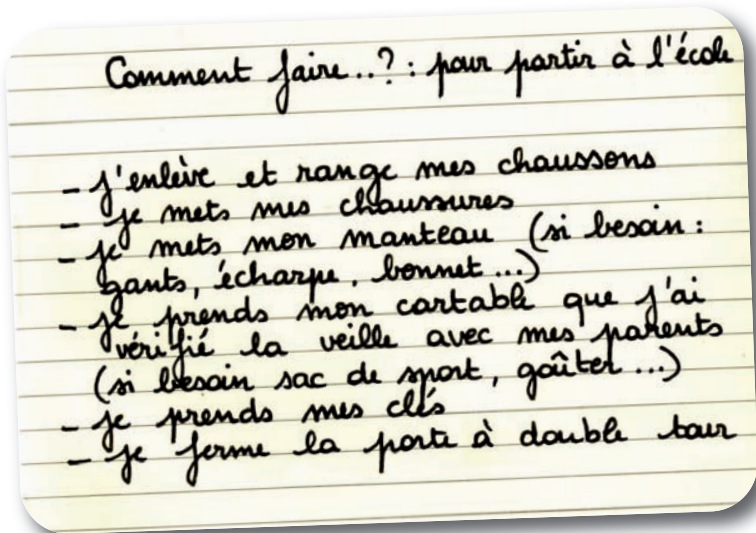 Comment faire..? : pour partir à l'école
- j'enlève et range mes chaussons
- je mets mes chaussures
- je mets mon manteau (si besoin :
gants, écharpe, bonnet...)
- je prends mon cartable que j'ai
vérifié la veille avec mes parents
(si besoin sac de sport, goûter...)
- je prends mes clés
- je ferme la porte à double tour